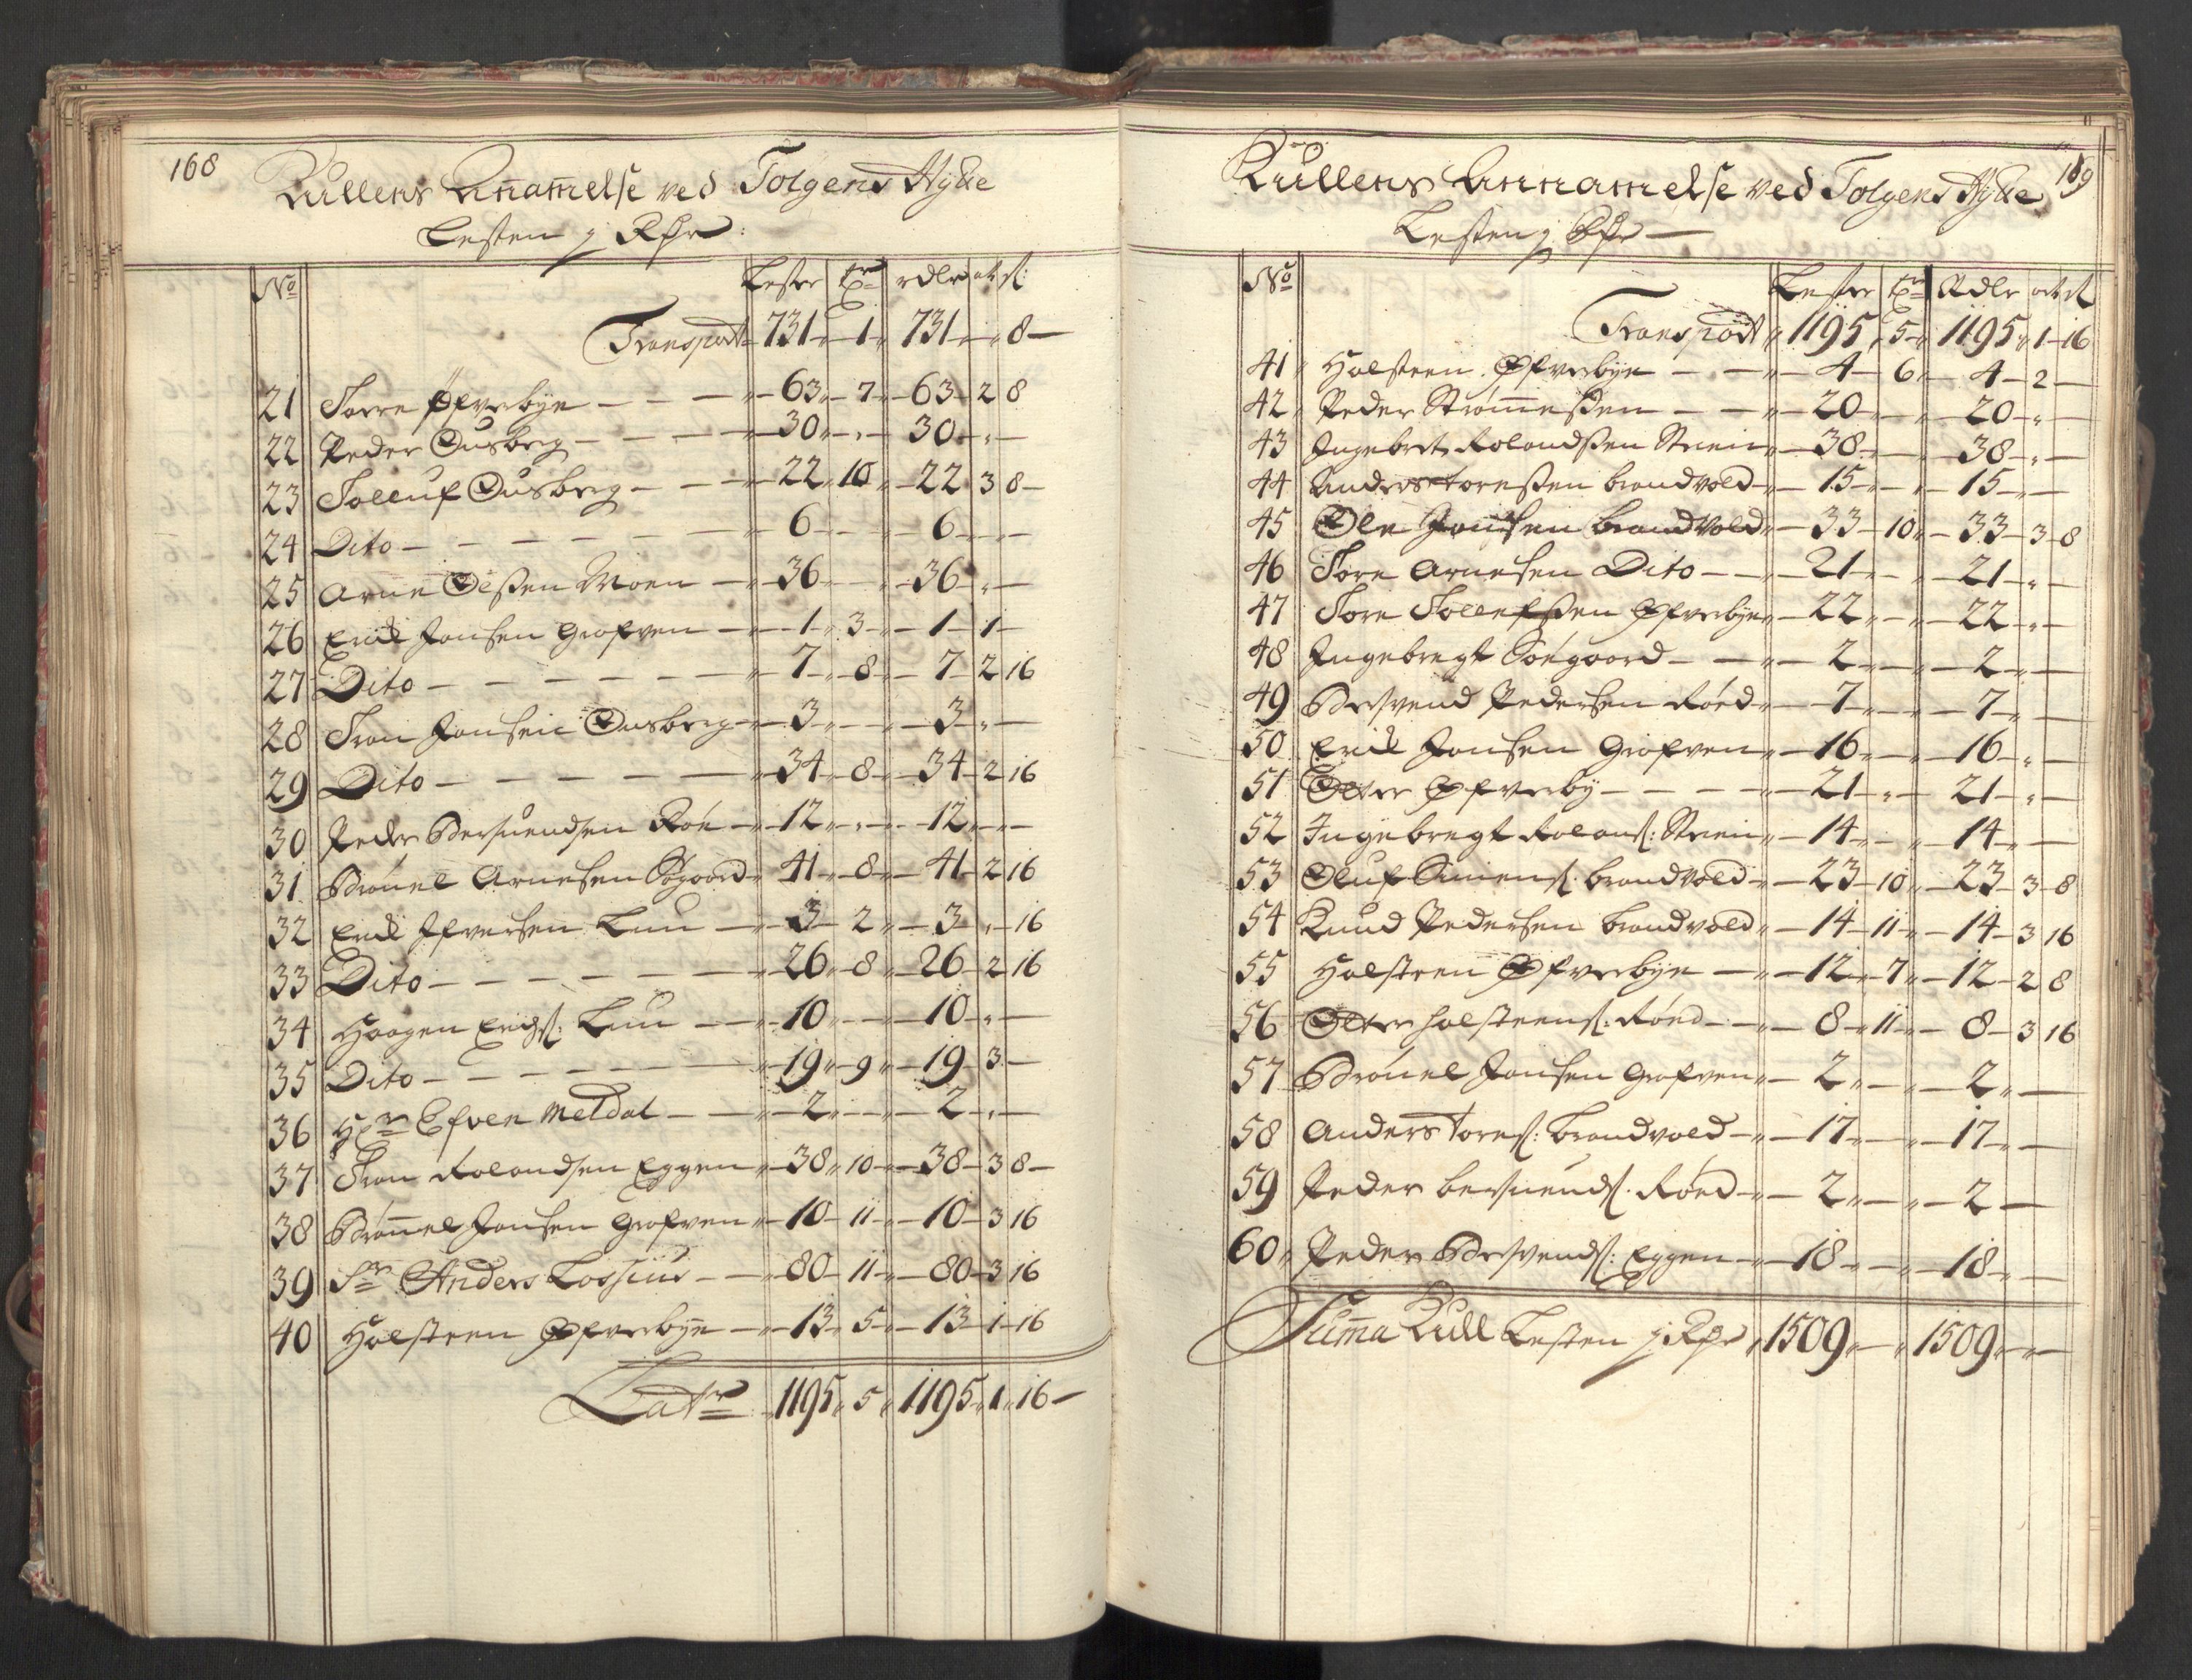 168
Kullens Annammelse ved Tolgens Hytte
Lesten j Rdr:
No Lester Tr rdlr ort sl:
Transport 731 1 731 8
21 Torre Øfverbye 63 7 63 2 8
22 Peder Ousberg 30 30
23 Tolluf Ousberg 22 10 22 3 8
24 Dito 6 6
25 Arne Olsen Moen 36 36
26 Erik Jonsen Grafven 1 3 1 1
27 Dito 7 8 7 2 16
28 Tron Jonsen Ousberg 3 3
29 Dito 34 8 34 2 16
30 Peder Bersuendsen Roe 12 12
31 Brønel Arnesen Søgaard 41 8 41 2 16
32 Erik Ifversen Luu 3 2 3 16
33 Dito 26 8 26 2 16
34 Haagen Erichs: Luu 10 10
35 Dito 19 9 19 3
36 Hr Efven Meldal 2 2
37 Tron Rolandsen Eggen 38 10 38 3 8
38 Brønnel Jonsen Grafven 10 11 10 3 16
39 Sr Anders Lossius 80 11 80 3 16
40 Holsteen Øfverbye 13 5 13 1 16
Latr 1195 5 1195 1 16
169
Kullens Annammelse ved Tolgens Hytte
Lesten j Rdr
No Lester Tr Rdlr ort sl
Transport 1195 5 1195 1 16
41 Holsteen Øfverbye 4 6 4 2
42 Peder Strømmesen 20 20
43 Ingebret Rolandsen Streen 38 38
44 Anders Toresen Brandvold 15 15
45 Ole Jonsen Brandvold 33 10 33 3 8
46 Tore Arnesen Dito 21 21
47 Tore Tollefsen Øfverbye 22 22
48 Ingebregt Søegaard 2 2
49 Bersvend Pedersen Røed 7 7
50 Erik Jonsen Grafven 16 16
51 Otter Øfverby 21 21
52 Ingebregt Rolans: Streen 14 14
53 Oluf Simens: Brandvold 23 10 23 3 8
54 Knud Pedersen Brandvold 14 11 14 3 16
55 Holsteen Øfverbye 12 7 12 2 8
56 Otter Holsteens: Røed 8 11 8 3 16
57 Brønel Jonsen Grafven 2 2
58 Anders Tores: Brandvold 17 17
59 Peder Bersuends: Røed 2 2
60 Peder Bersvends: Eggen 18 18
Summa Kull Lesten j Rdr 1509 1509